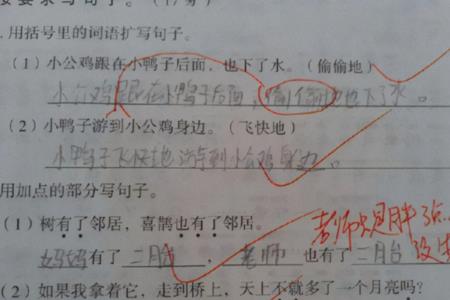 按要求写句子。（17分）
.用括号里的词语扩写句子。
（1）小公鸡跟在小鸭子后面，也下了水。（偷偷地）
小公鸡跟在小鸭子后面，偷偷地也下了水。
（2）小鸭子游到小公鸡身边。（飞快地）
小鸭子飞快地游到小公鸡身边。
用加点的部分写句子。
（1）树有了邻居，喜鹊也有了邻居。
老师只是胖了点
没
妈妈有了二月台，老师也有了二月台
（2）如果我拿着它，走到桥上，天上不就多了一个月亮吗？